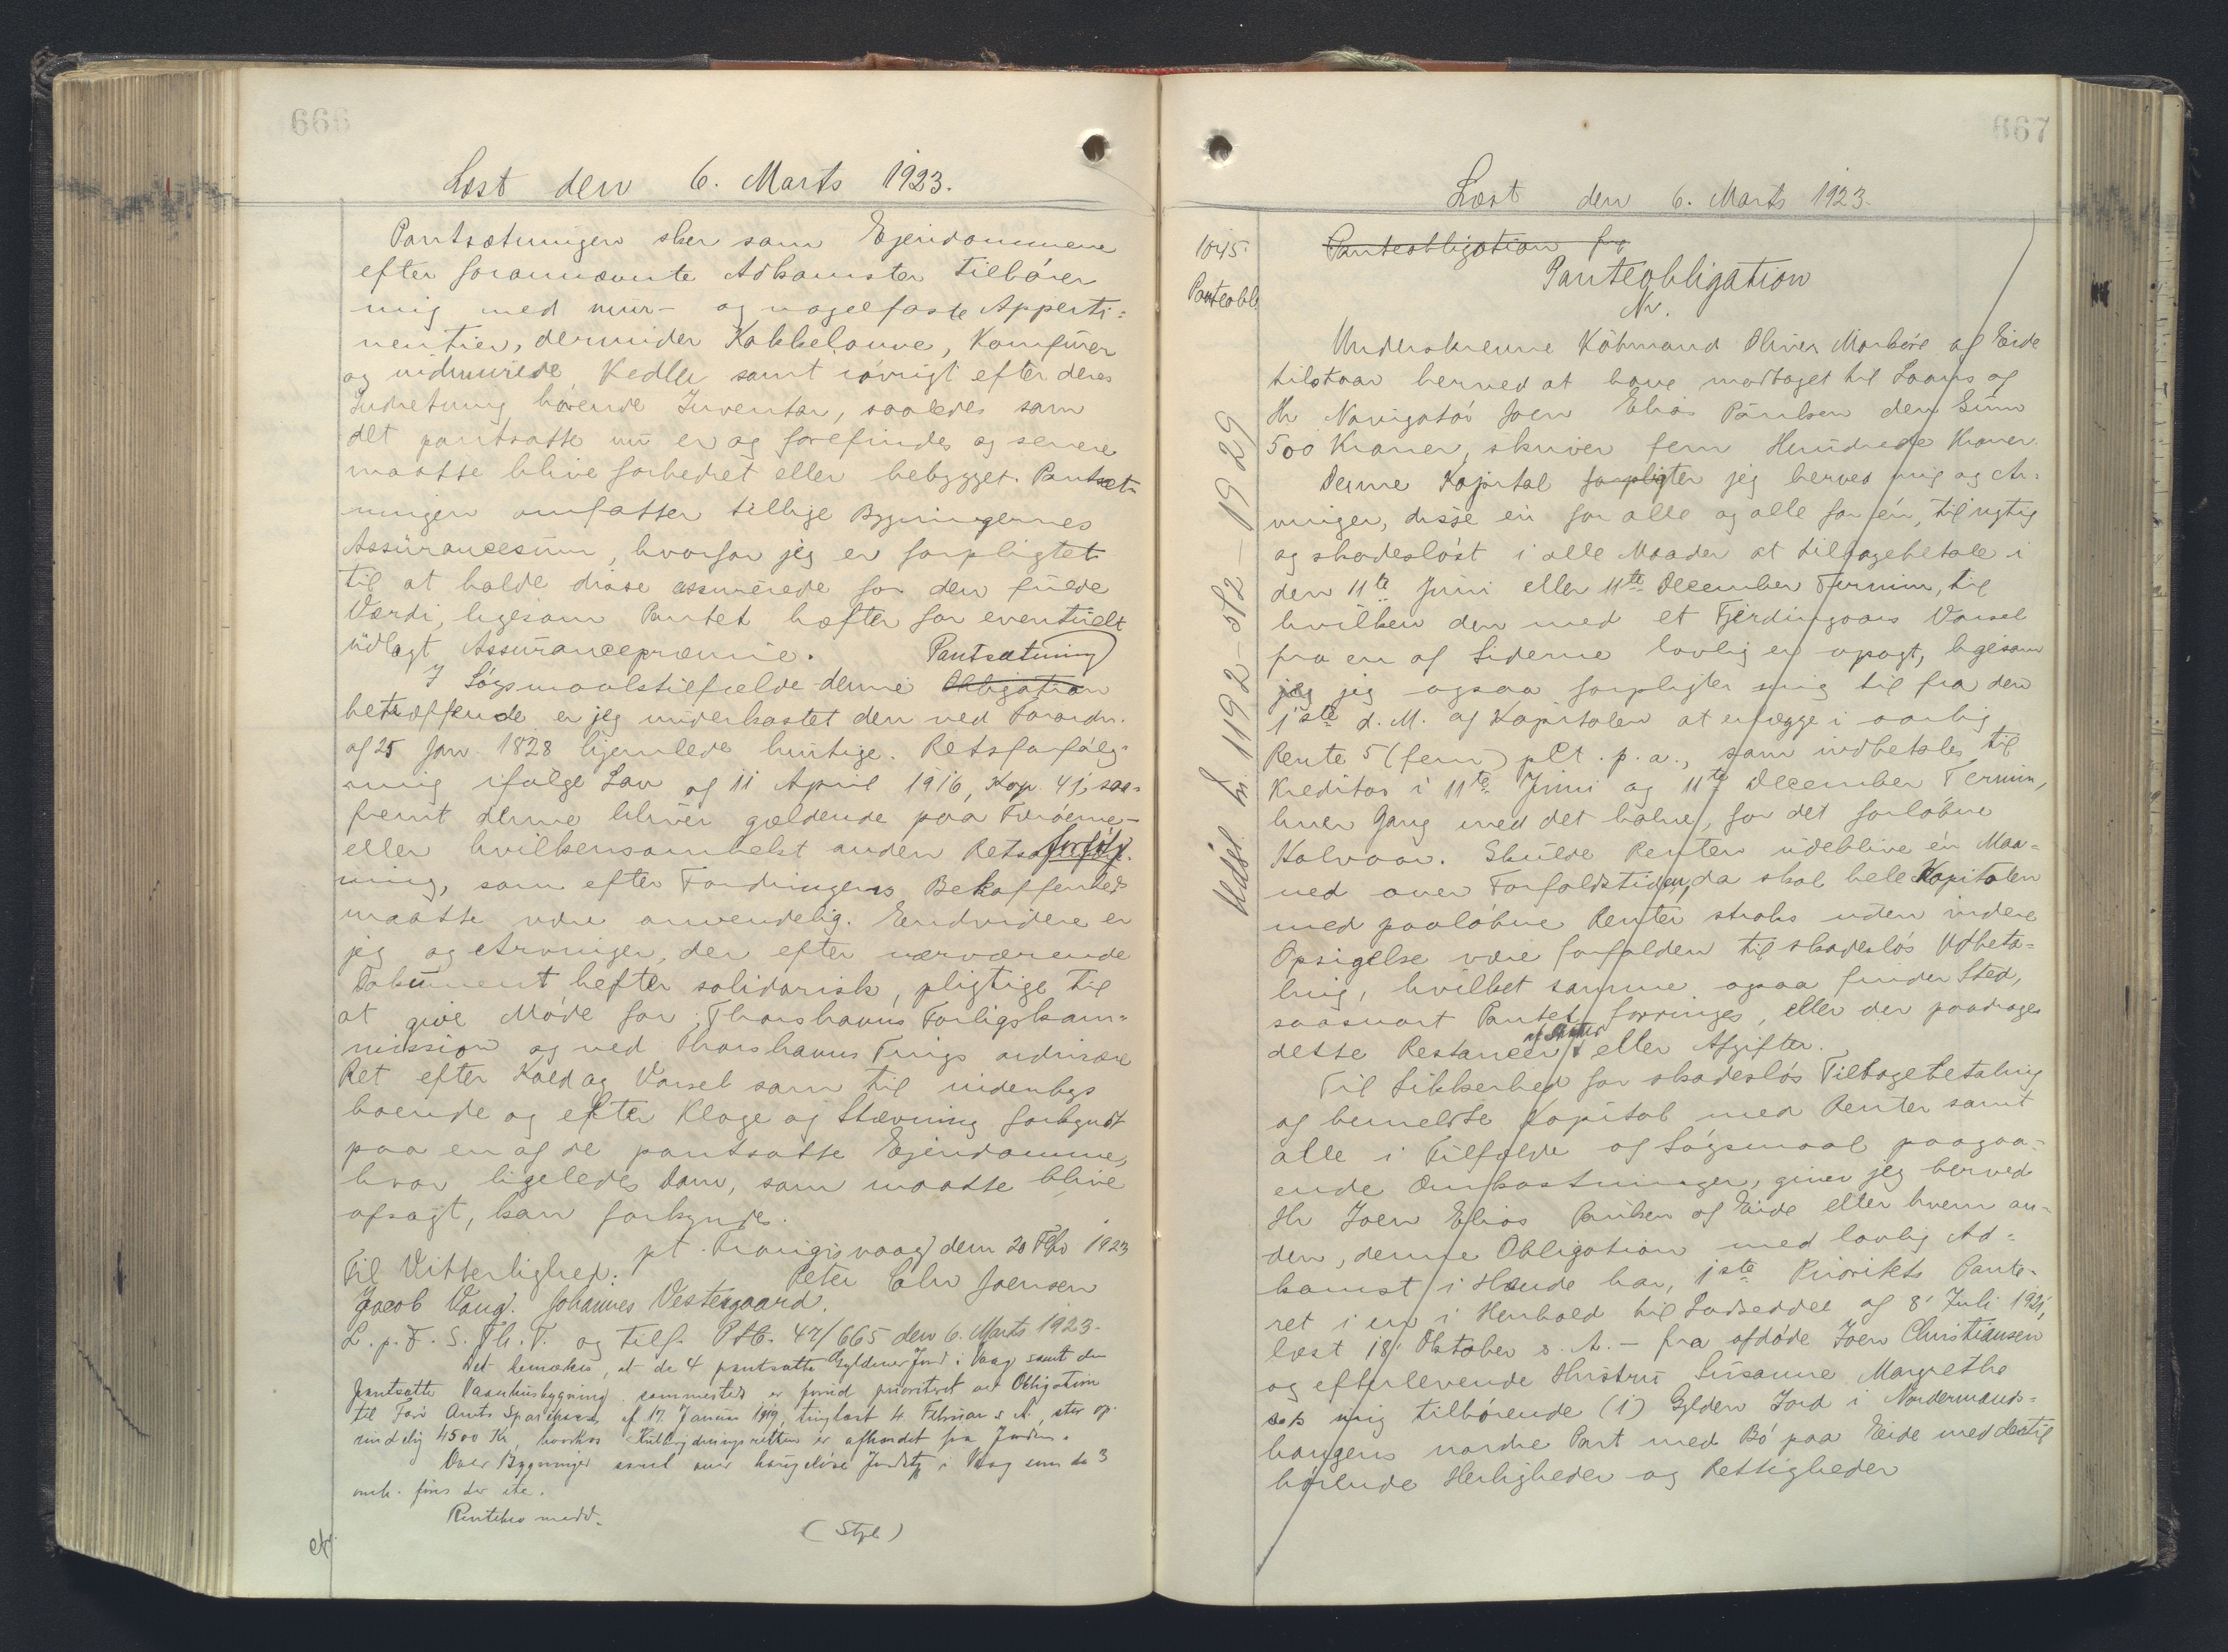 666
Læst den 6. Marts 1923.
Pantsætningen sker som Ejendommene
efter forannævnte Adkomster tilhører
mig med mur- og nagelfaste Apperti-
nentier, derunder Kakkelovne, Komfurer
og indmurede Kedler samt iøvrigt efter deres
Indretning hørende Inventar, saaledes som
det pantsatte nu er og forefindes og senere
maatte blive forbedret eller bebygget. Pantsæt-
ningen omfatter tillige Bygningernes
Assurancesum, hvorfor jeg er forpligtet
til at holde disse assurerede for den fulde
Værdi, ligesom Pantet hæfter for eventuelt
udlagt Assurancepræmie. Pantsætning
I Søgsmaalstilfælde denne Obligation
betræffende er jeg underkastet den ved Forordn.
af 25 Jan. 1828 hjemlede hurtige. Retsforfølg-
ning ifølge Lov af 11 April 1916, Kap 41, saa-
fremt denne bliver gældende paa Færøerne-
eller hvilkensomhelst anden Retsforfølg-
ning, som efter Fordringens Beskaffenhed
maatte være anvendelig. Endvidere er
jeg og Arvinger, der efter nærværende
Dokument hefter solidarisk, pligtige til
at give Møde for Thorshavns Forligskom-
mission og ved Thorshavns Tings ordinære
Ret efter Kald og Varsel som til indenbys
boende og efter Klage og Stævning forkyndt
paa en af de pantsatte Ejendomme,
hvor ligeledes Dom, som maatte blive
afsagt, kan forkyndes.
pt. Trangisvaag dem 20 Febr 1923
Til Vitterlighed: Peter Chr Joensen
Jacob Vang. Johannes Vestergaard.
L. p. F. S. Th. T. og tilf. P.t.b. 47/665 den 6. Marts 1923.
Det bemærkes, at de 4 pantsatte Gyldener Jord i Vaag samt den
pantsatte Vaanhusbygning sammesteds er forud prioriteret ved Obligation
til Færø Amts Sparekasse af 17. Januar 1919, tinglæst 4. Februar s. A., stor op-
rindelig 4500 Kr, hvorhos er afhændet fra Jorden.
Over Bygninger samt over Jordstk i Vaag som de 3
omh. fins der ikke.
medd.
(Styh)
667
Læst den 6. Marts 1923.
1045.
Panteobl.
Panteobligation fra
Panteobligation
Nr.
Underskrevne Købmand Oliver Morkøre af Eide
tilstaar herved at have modtaget til Laans af
Hr Navigatør Joen Elias Poulsen den Sum
500 Kroner, skriver fem Hundrede Kroner.
Denne Kapital forpligter jeg herved mig og Ar-
vinger, disse en for alle og alle for én, til rigtig
og skadesløst i alle Maader at tilbagebetale i
den 11te Juni eller 11te December Termin, til
hvilken den med et Fjerdingaars Varsel
fra en af Siderne lovlig er opsagt, ligesom
jeg jeg ogsaa forpligter mig til fra den
1ste d. M. af Kapitalen at erlægge i aarlig
Rente 5 (fem) pCt. p. a., som indbetales til
Kreditor i 11te Juni og 11te December Termin,
hver Gang med det halve, for det forløbne
Halvaar. Skulde Renten udeblive én Maa-
ned over Forfaldstiden, da skal hele Kapitalen
med paaløbne Renter straks uden videre
Opsigelse være forfalden til skadesløs Udbeta-
ling, hvilket samme ogsaa finder Sted,
saasnart Pantet forringes, eller der paadrages
dette Restancer af Skatter eller Afgifter.
Til Sikkerhed for skadesløs Tilbagebetaling
af bemeldte Kapital med Renter samt
alle i Tilfælde af Søgsmaal paagaa-
ende Omkostninger, giver jeg herved
Hr Joen Elias Poulsen af Eide eller hvem an-
den, denne Obligation med lovlig Ad-
komst i Hænde har, 1ste Prioritets Pante-
ret i en i Henhold til Skødseddel af 8' Juli 1921,
læst 18' Oktober s. A. - fra afdøde Joen Christiansen
og efterlevende Hustru Susanne Margrethe
mig tilhørende (1) Gylden Jord i Nordermands-
haugens nordre Part med Bø paa Eide med dertil
hørende Herligheder og Rettigheder
Udsl. Lb. 1192-512-1929